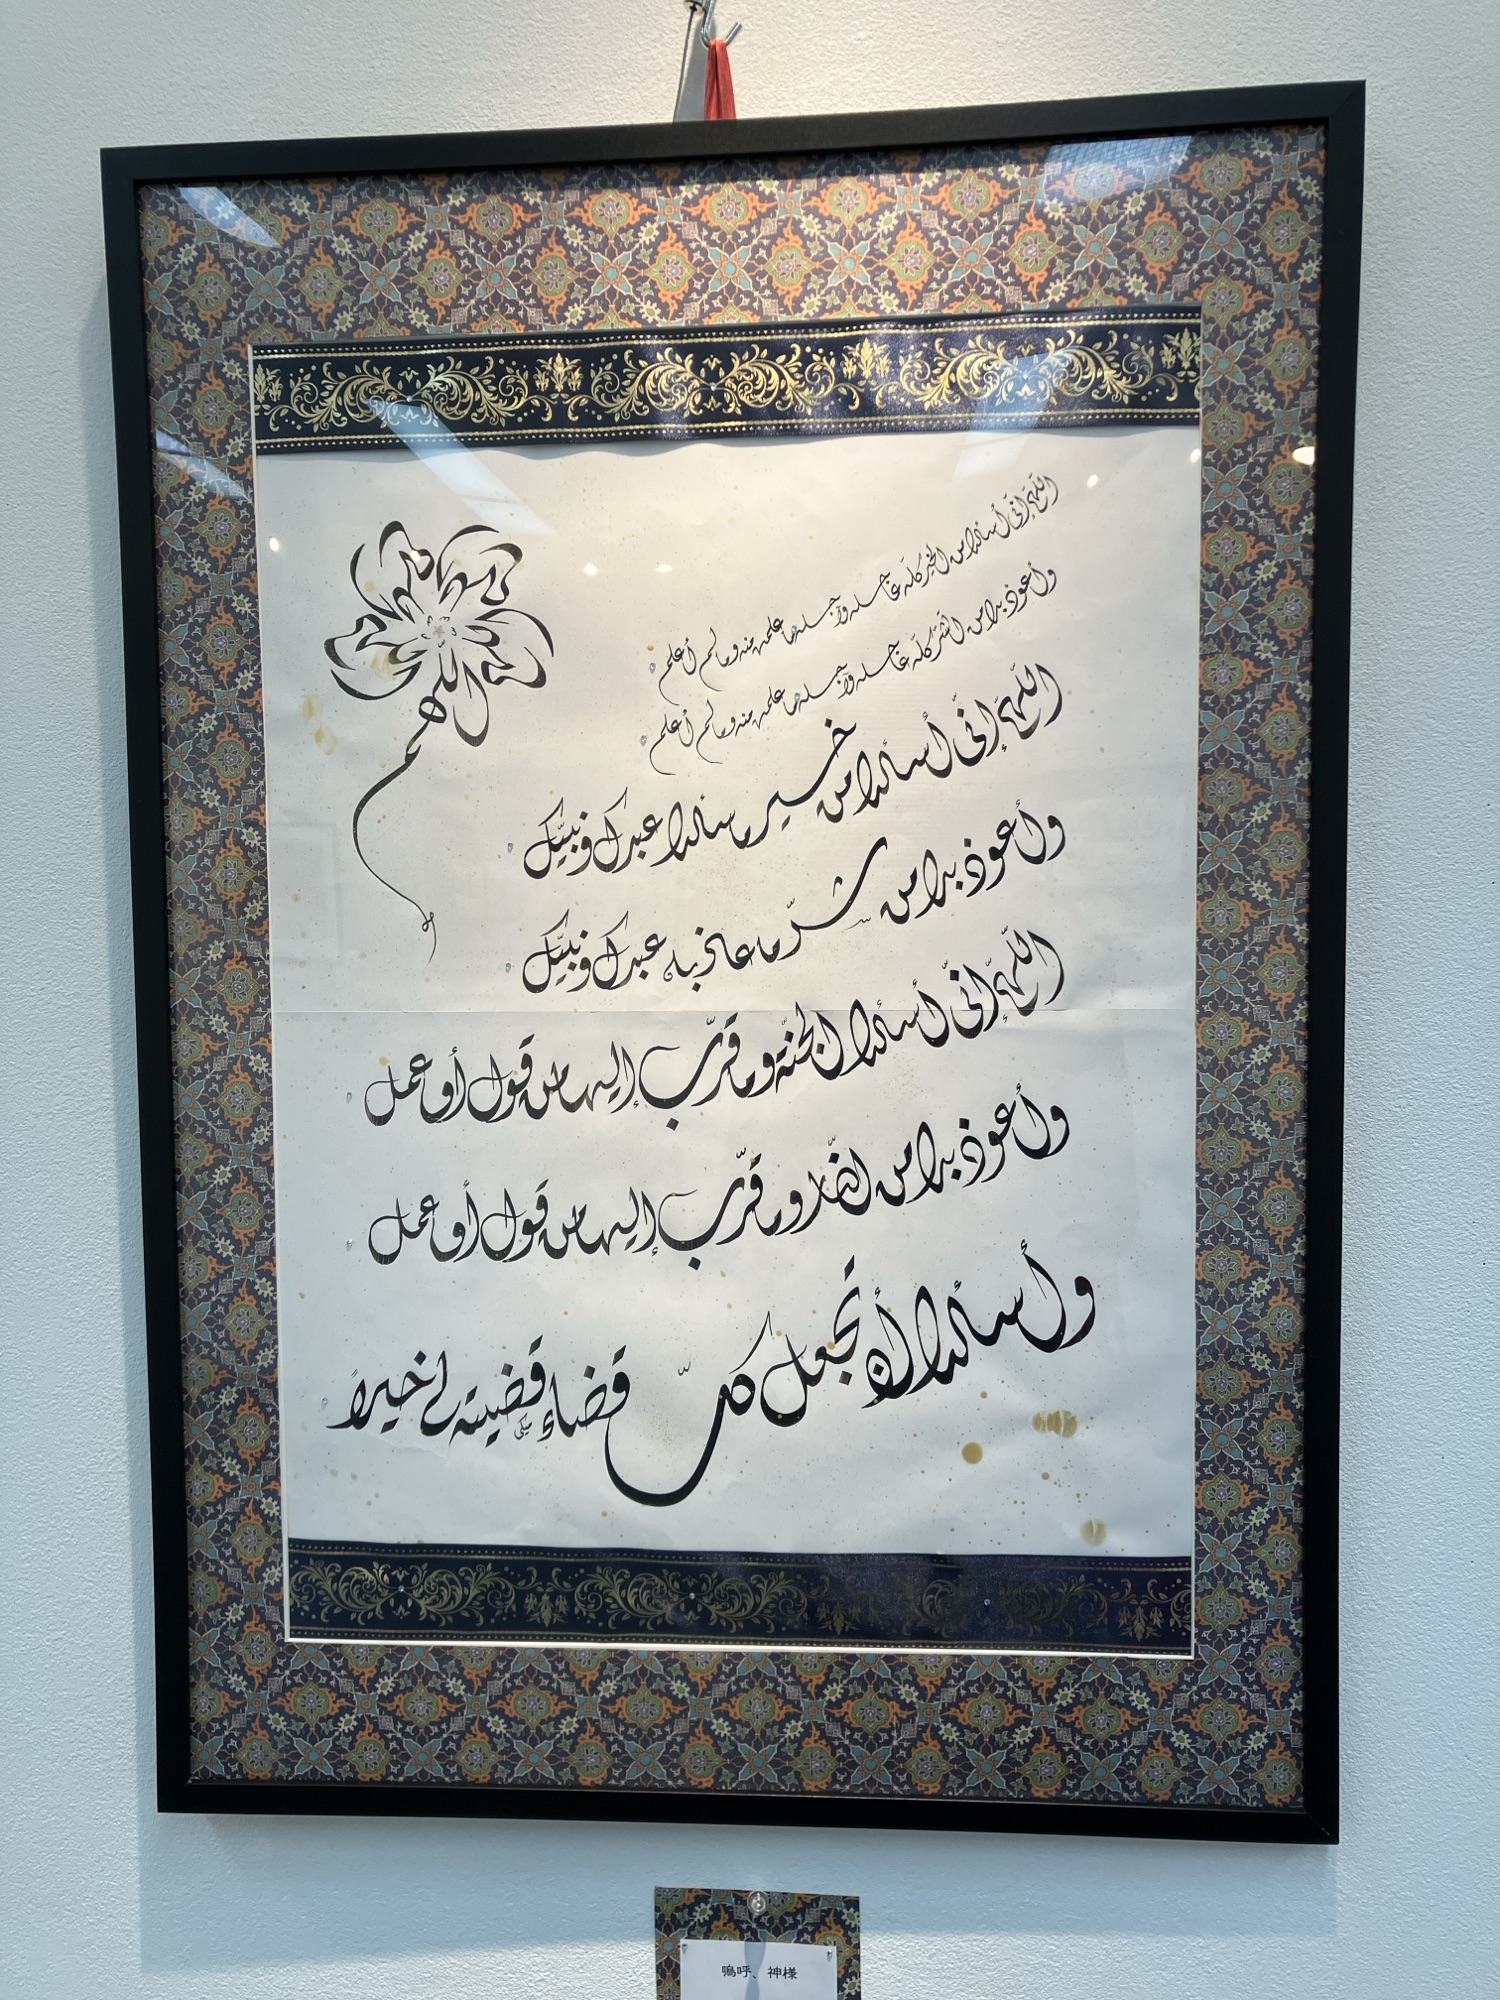 اللهم
اللّهمّ إنّي أسألك من الخير كلّه عاجله وآجله ما علمت منه وما لم أعلم
وأعوذ بك من الشّرّ كلّه عاجله وآجله ما علمت منه وما لم أعلم
اللّهمّ إنّي أسألك من خير ما سألك عبدك ونبيّك
وأعوذ بك من شرّ ما عاذ به عبدك ونبيّك
اللّهمّ إنّي أسألك الجنّة وما قرّب إليها من قول أو عمل
وأعوذ بك من النّار وما قرّب إليها من قول أو عمل
وأسألك أن تجعل كلّ قضاءٍ قضيته لي خيراً
嗚呼、神様